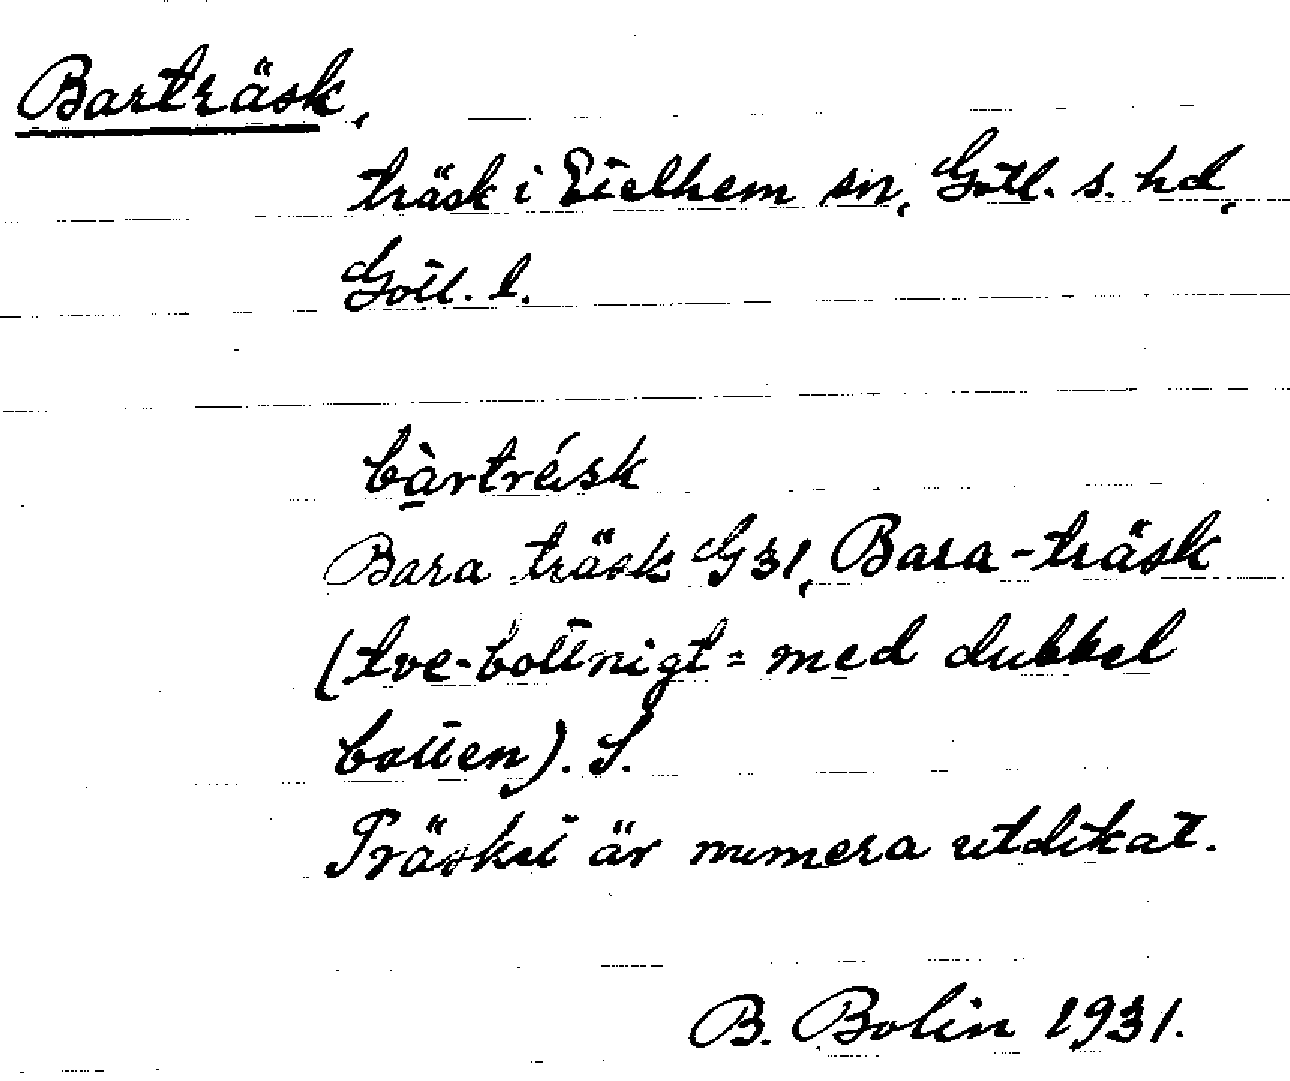 Barträsk,
träsk i Etelhem sn, Gotl. s. hd,
Gotl. l.
bàrtrésk
Bara träsk G31, Bara-träsk
(tve-bottnigt = med dubbel
botten). S.
Träsket är numera utdikat.
B. Bolin 1931.